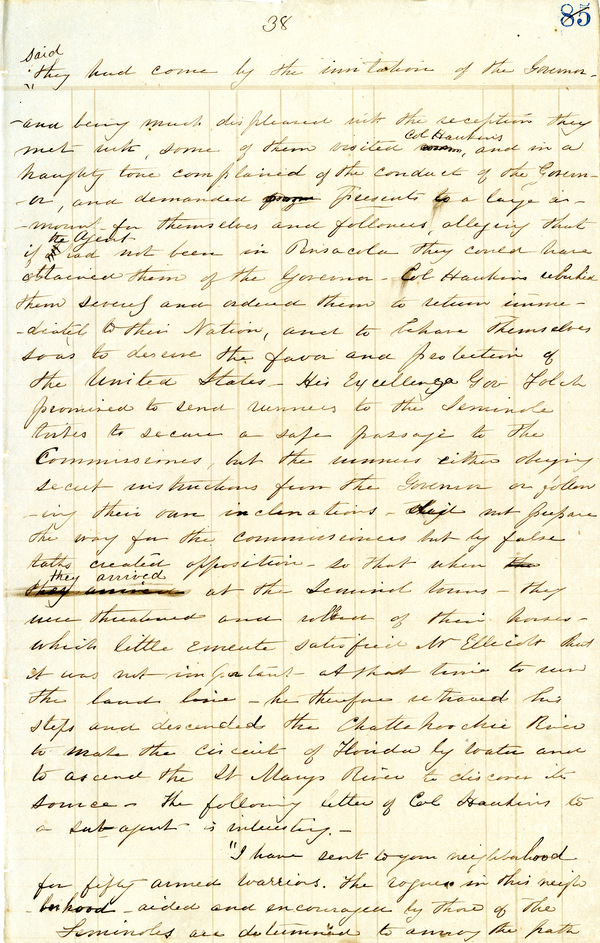 38
85
said
"they had come by the invitation of the Governor-
-and being much displeased with the reception they
met with, some of them visited Col Hawkins, and in a
haughty tone complained of the conduct of the Govern-
-or, and demanded presents to a large a-
-mount for themselves and followers, alleging that
if the Agent had not been in Pensacola they could have
obtained them of the Governor - Col Hawkins rebuked
them severely and ordered them to return imme-
-diately to their Nation, and to behave themselves
so as to deserve the favor and protection of
the United States - His Excellency Gov Folch
promised to send runners to the Seminole
tribes to secure a safe passage to the
Commissioners, but the runners either obeying
secret instructions from the Governor or follow
-ing their own inclinations - did not prepare
the way for the commissioners but by false
talks created opposition - so that when
they arrived at the Seminol towns - they
were threatened and robbed of their horses -
which little emeute satisfied Mr Ellicott that
it was not important - at that time to run
the land line - he therefore retraced his
steps and descended the Chattahoochie River
to make the circuit of Florida by water and
to ascend the St Marys River to discover its
source - The following letter of Col Hawkins to
a sub-agent is interesting. -
"I have sent to your neighborhood
for fifty armed warriors. The rogues in this neigh
-borhood aided and encouraged by those of the
Seminoles are determined to annoy the path